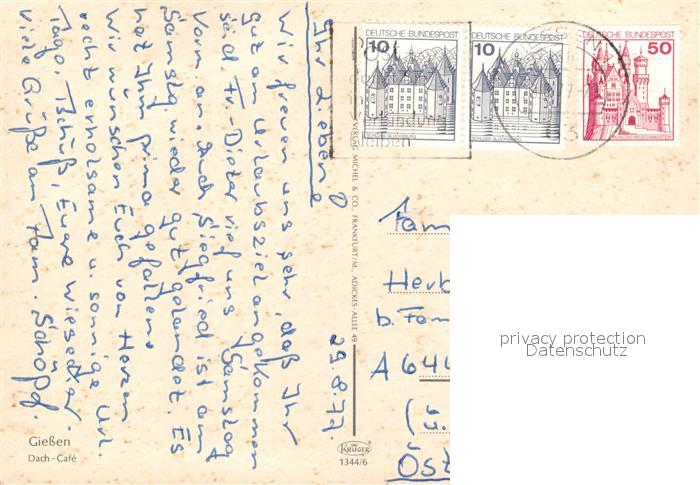 Ihr Lieben!
29.8.77.
Wir freuen uns sehr, daß Ihr
gut am Urlaubsziel angekommen
seid. Fr. Dieter rief uns Samstag
Vorm. an. Auch Siegfried ist am
Samstag wieder gut gelandet. Es
hat Ihm prima gefallen.
Wir wünschen Euch von Herzen
recht erholsame u. sonnige Url.
Tage. Tschüß, Euere Wiesecker.
Viele Grüße an Fam. Schöpf.
Gießen
Dach-Café
VERLAG MICHEL & CO., FRANKFURT/M., ADICKES-ALLEE 49
KRÜGER
1344/6
DEUTSCHE BUNDESPOST
10
SCHLOSS GLÜCKSBURG
DEUTSCHE BUNDESPOST
10
SCHLOSS GLÜCKSBURG
DEUTSCHE BUNDESPOST
50
SCHLOSS NEUSCHWANSTEIN
bleiben
Fam
Herb
b. Fam
A 646
(ü.
Öst
privacy protection
Datenschutz